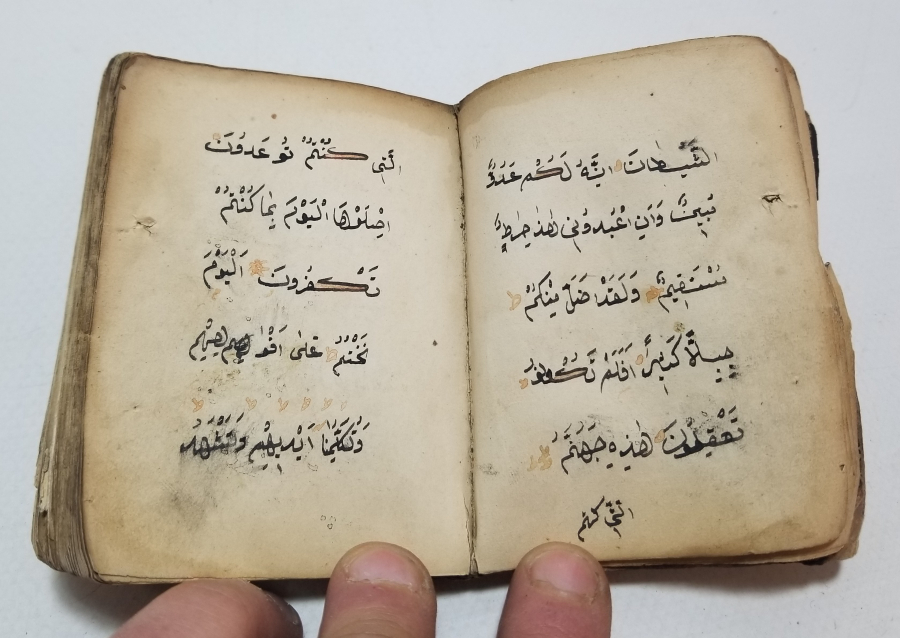 الشَّيْطَانَ اِنَّهُ لَكُمْ عَدُوٌّ
مُبِينٌ وَاَنِ اعْبُدُونِي هٰذَا صِرَاطٌ
مُسْتَقِيمٌ وَلَقَدْ اَضَلَّ مِنْكُمْ
جِبِلًّا كَثِيرًا اَفَلَمْ تَكُونُوا
تَعْقِلُونَ هٰذِهِ جَهَنَّمُ
الَّتِي كنتم
الَّتِي كُنْتُمْ تُوعَدُونَ
اِصْلَوْهَا الْيَوْمَ بِمَا كُنْتُمْ
تَكْفُرُونَ اَلْيَوْمَ
نَخْتِمُ عَلٰى اَفْوَاهِهِمْ
وَتُكَلِّمُنَا اَيْدِيهِمْ وَتَشْهَدُ